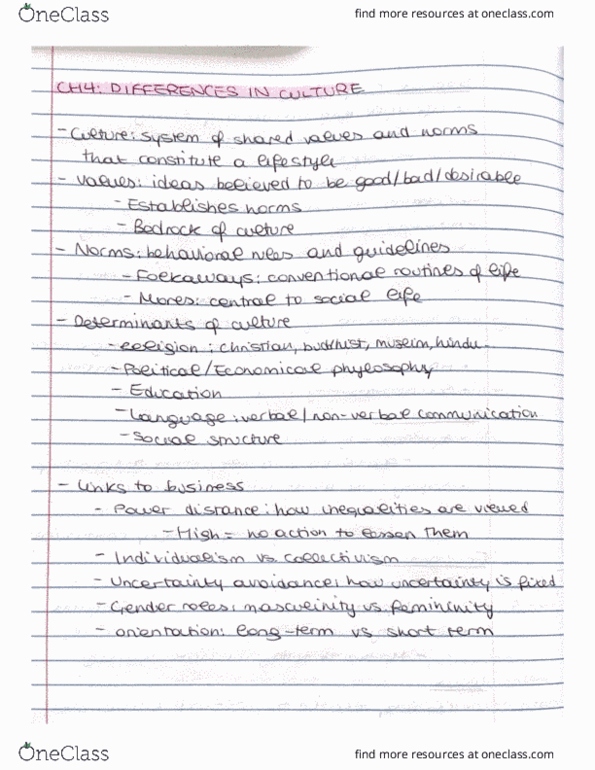 OneClass
find more resources at oneclass.com
CH4: DIFFERENCES IN CULTURE
- Culture: system of shared values and norms
that constitute a lifestyle
- Values: ideas believed to be good/bad/desirable
- Establishes norms
- Bedrock of culture
- Norms: behavioral rules and guidelines
- Folkaways: conventional routines of life
- Mores: central to social life
- Determinants of culture
- religion: christian, buddhist, muslim, hindu
- Political/Economical phylosophy
- Education
- Language: verbal/non-verbal communication
- Social structure
- Links to business
- Power distance: how inequalities are viewed
- High = no action to lessen them
- Individualism vs collectivism
- Uncertainty avoidance: how uncertainty is fixed
- Gender roles: masculinity vs femininity
- orientation: long-term vs short term
OneClass
find more resources at oneclass.com